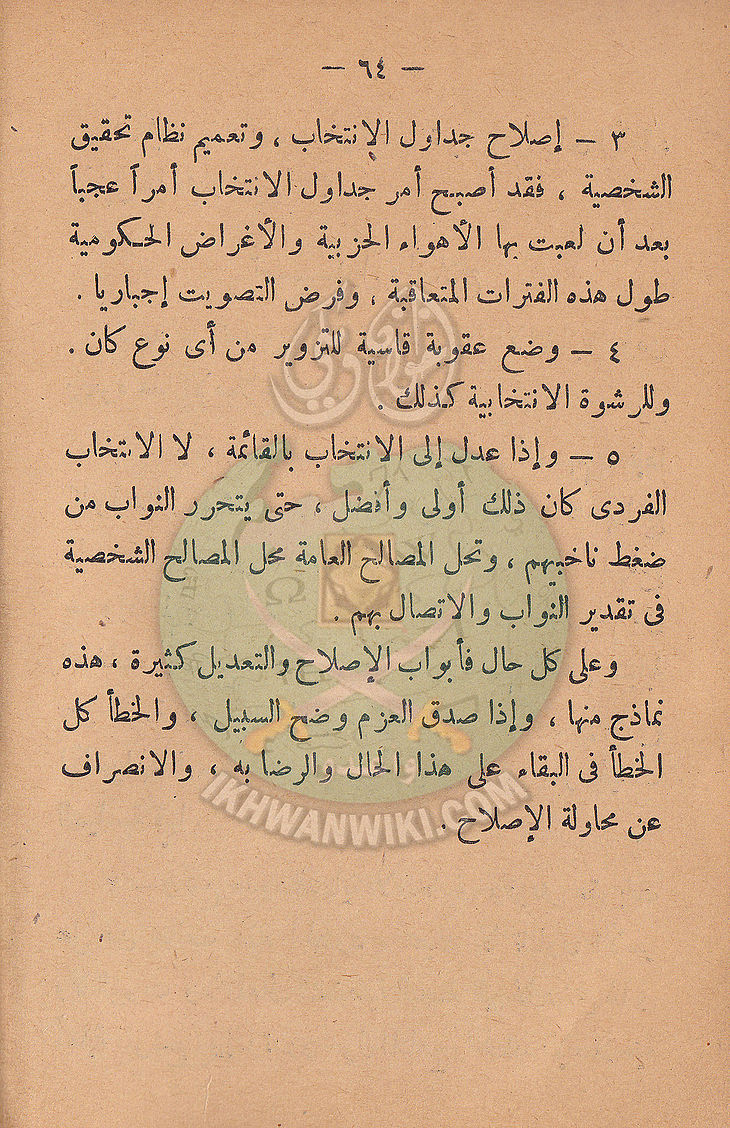 — ٦٤ —
٣ — إصلاح جداول الانتخاب ، وتعميم نظام تحقيق
الشخصية ، فقد أصبح أمر جداول الانتخاب أمراً عجباً
بعد أن لعبت بها الأهواء الحزبية والأغراض الحكومية
طول هذه الفترات المتعاقبة ، وفرض التصويت إجباريا .
٤ — وضع عقوبة قاسية للتزوير من أى نوع كان .
وللرشوة الانتخابية كذلك .
٥ — وإذا عدل إلى الانتخاب بالقائمة ، لا الانتخاب
الفردى كان ذلك أولى وأفضل ، حتى يتحرر النواب من
ضغط ناخبيهم ، وتحل المصالح العامة محل المصالح الشخصية
فى تقدير النواب والاتصال بهم .
وعلى كل حال فأبواب الإصلاح والتعديل كثيرة ، هذه
نماذج منها ، وإذا صدق العزم وضح السبيل ، والخطأ كل
الخطأ فى البقاء على هذا الحال والرضا به ، والانصراف
عن محاولة الإصلاح .
IKHWANWIKI.COM